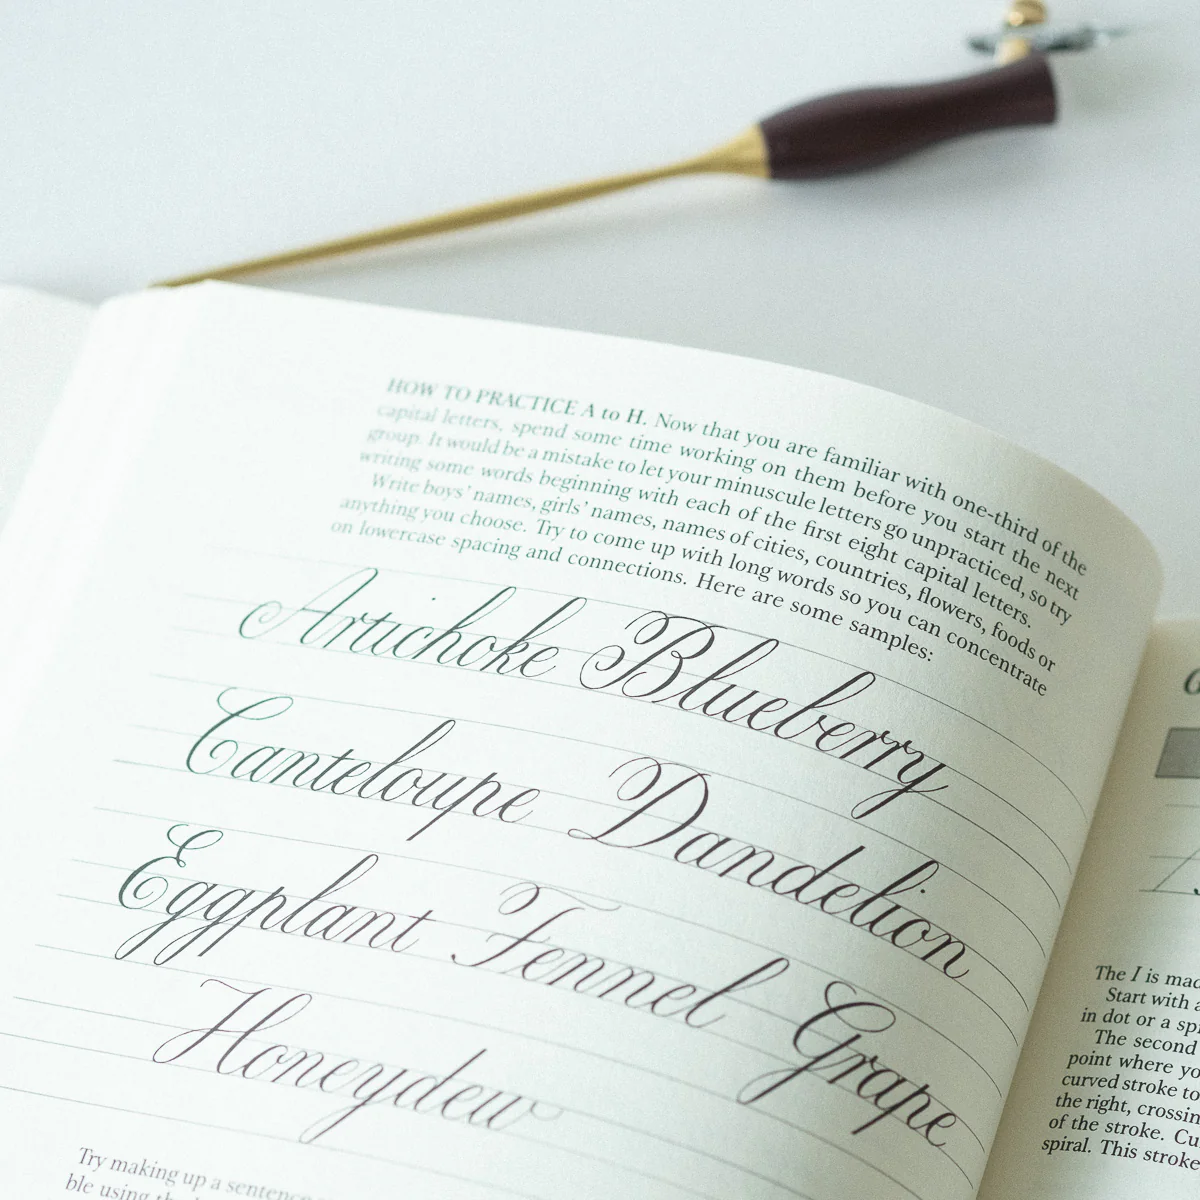 HOW TO PRACTICE A to H. Now that you are familiar with one-third of the
capital letters, spend some time working on them before you start the next
group. It would be a mistake to let your minuscule letters go unpracticed, so try
writing some words beginning with each of the first eight capital letters.
Write boys' names, girls' names, names of cities, countries, flowers, foods or
anything you choose. Try to come up with long words so you can concentrate
on lowercase spacing and connections. Here are some samples:
Artichoke Blueberry
Canteloupe Dandelion
Eggplant Fennel Grape
Honeydew
Try making up a sentence
ble using
The I is
Start with a
in dot or a
The second
point where
curved stroke to
the right,
of the stroke.
spiral. This stroke